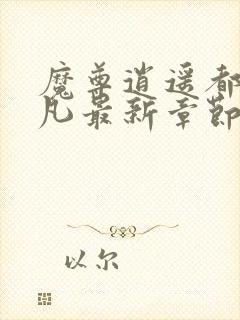 魔尊逍遥都
凡最新章节
以尔